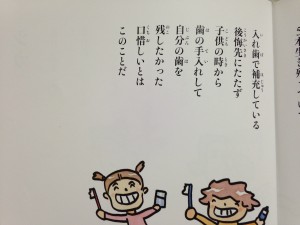 入れ歯で補充している
後悔先にたたず
子供の時から
歯の手入れして
自分の歯を
残したかった
口惜しいとは
このことだ